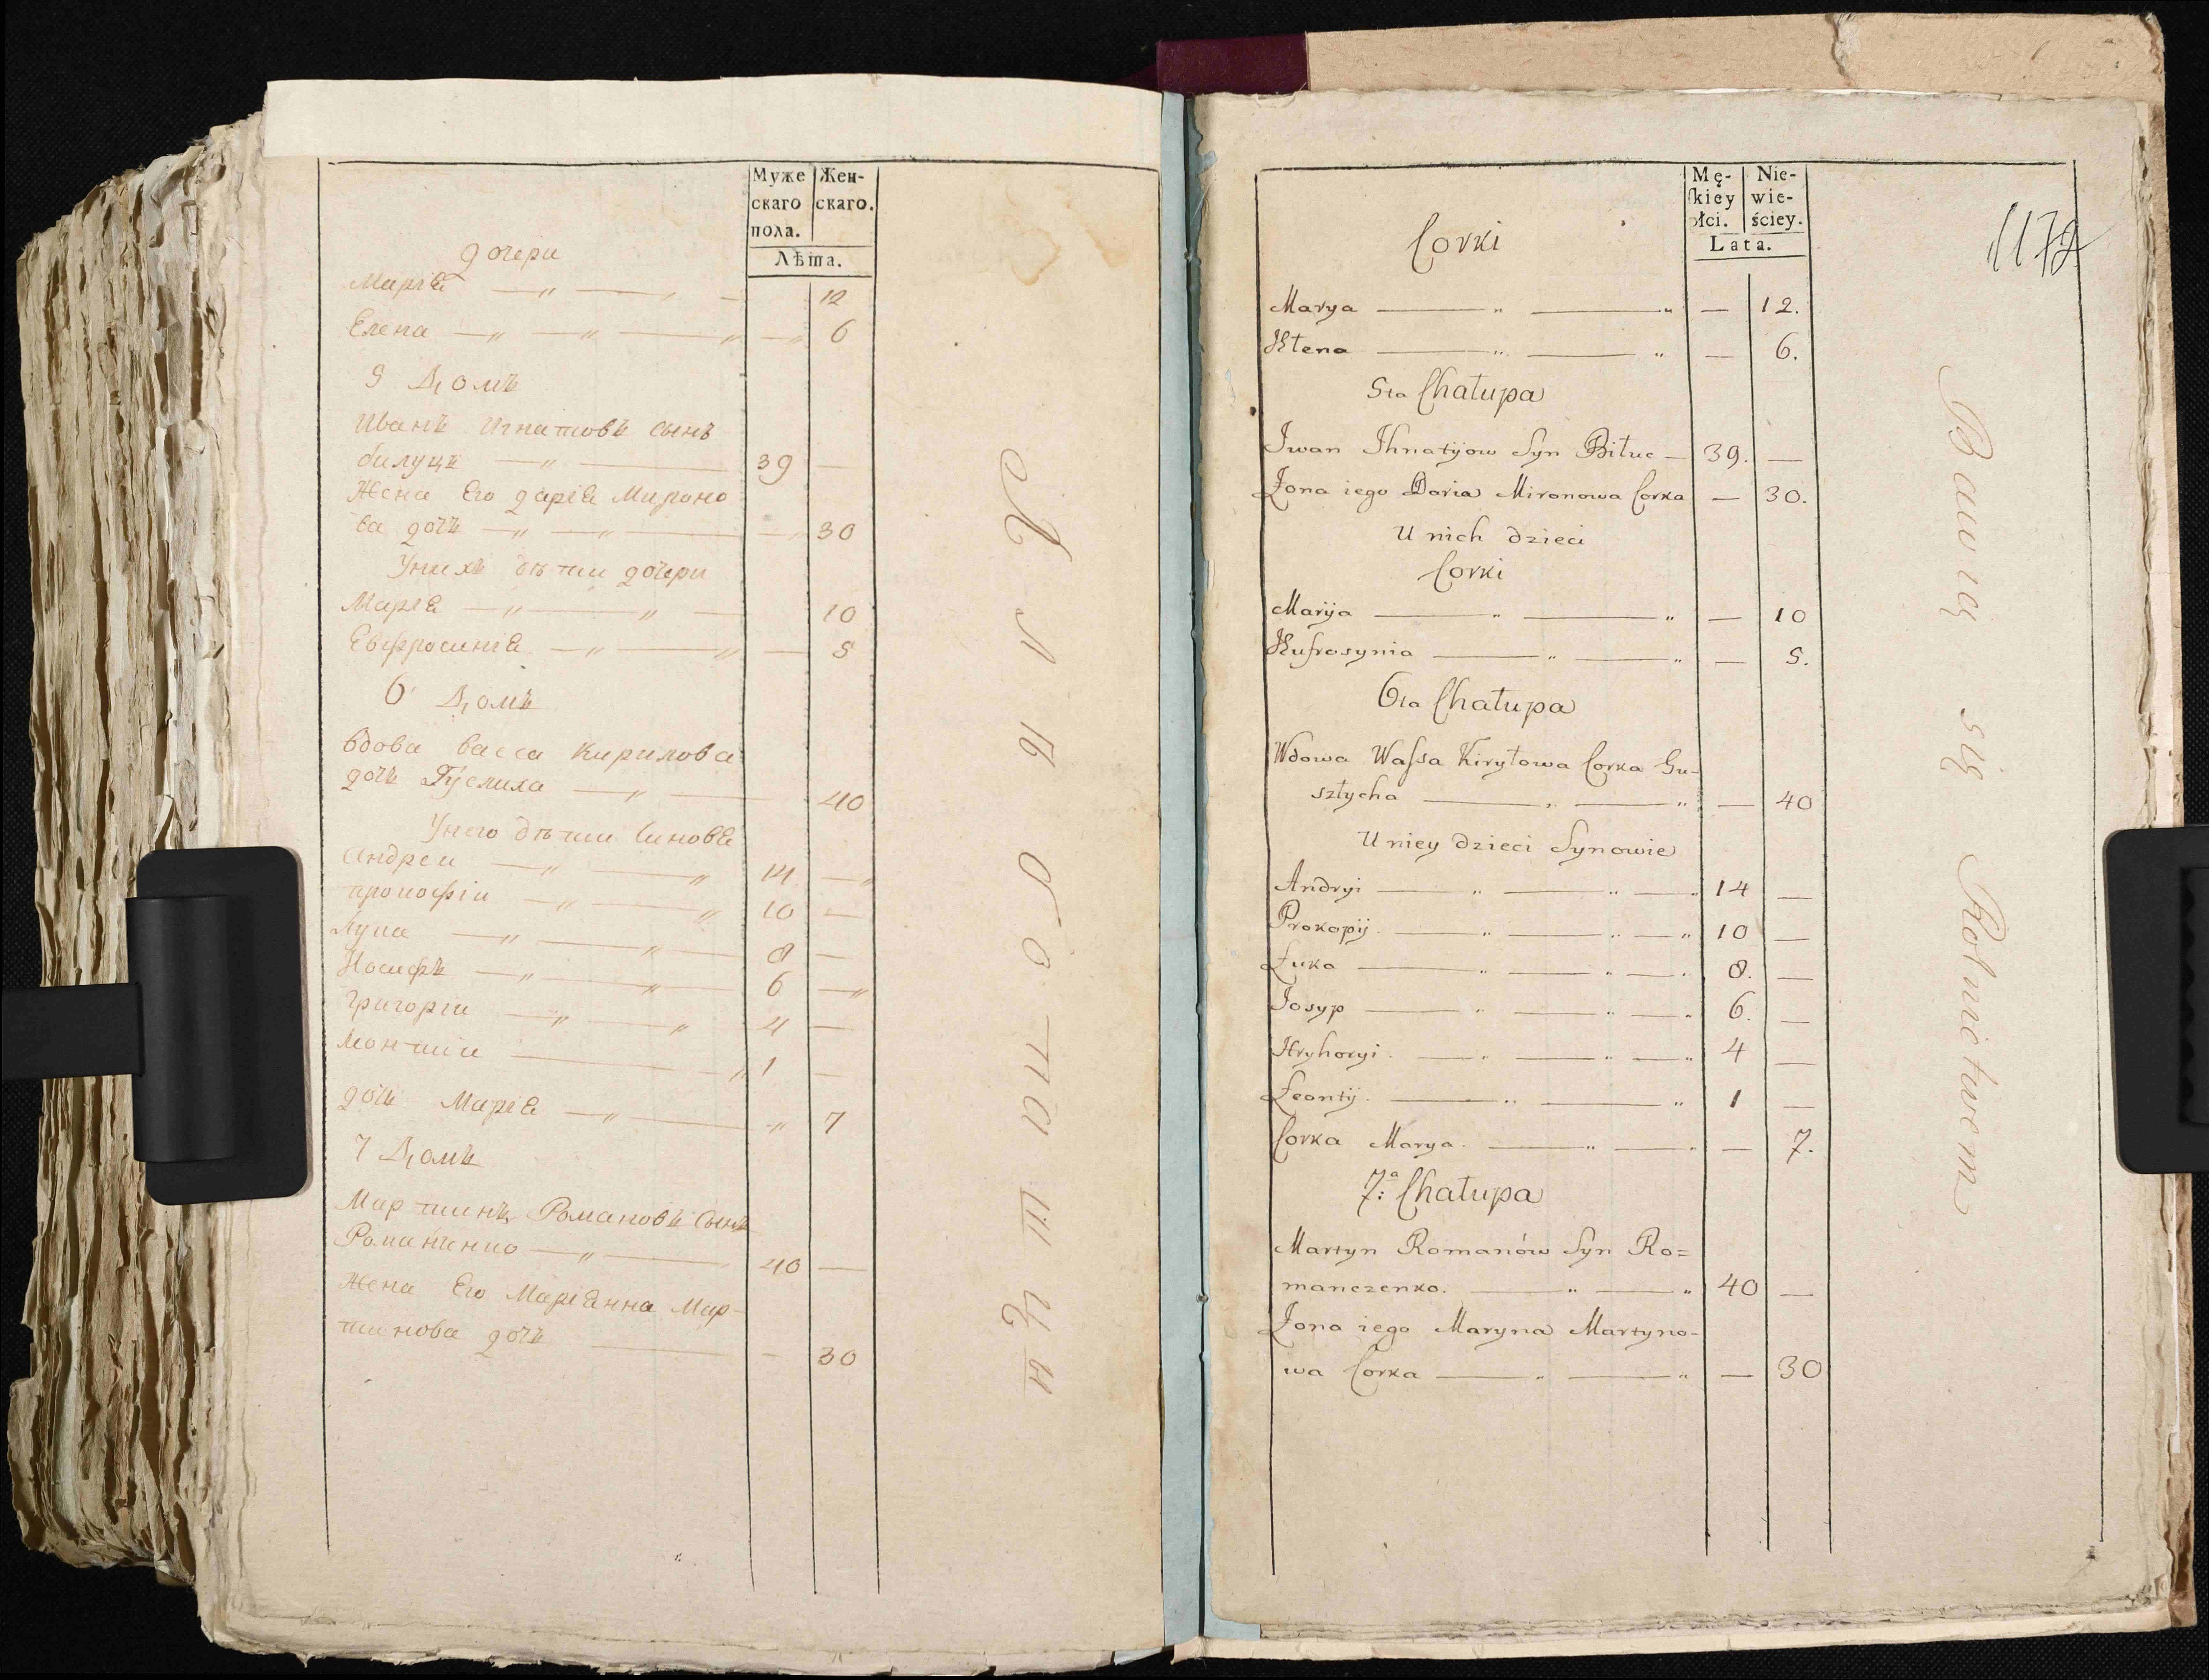 Муже
скаго
пола.
Жен-
скаго.
Лѣта.
дочери
Маріѣ — „ — „ — 12
Елена — „ — „ — „ — „ 6
5 Домъ
Иванъ Игнатовъ сынъ
билуцъ — „ — 39 —
Жена Его даріѣ Мироно
ва дочъ — „ — „ — — „ 30
Унихъ дѣти дочери
Маріѣ — „ — „ — 10
Евфросиніѣ — „ — „ — 5
6 Домъ
вдова васса Кирилова
дочъ — „ — 40
Унего дѣти Синовѣ
Андреи — „ — „ 14 — „
прокофіи — „ — „ 10 —
Лука — „ — „ — 8 —
Иосифъ — „ — „ — 6 — „
Григорги — „ — „ 4 —
— „ 1 —
дочъ Маріѣ — „ — „ 7
7 Домъ
Мартинъ Романовъ Сынъ
— „ — 40 —
Жена Его Маріѣнна Мар-
тинова дочъ — — 30
Х Л Ѣ б о п а ш ц и
Mę-
skiey
płci.
Nie-
wie-
ściey.
Lata.
1172
Corki
Marya — „ — „ — 12.
Hłena — „ — „ — 6.
5ta Chałupa
Iwan Ihnatyow Syn Biłuc — 39. —
Żona iego Daria Mironowa Corka — 30.
U nich dzieci
Corki
Maryja — „ — „ — 10
Heufrosynia — „ — „ — 5.
6ta Chałupa
Wdowa Wassa Kiryłowa Corka Gu-
szłycha — „ — „ — 40
U niey dzieci Synowie
Andryi — „ — „ — „ 14 —
Prokopij — „ — „ — „ 10 —
Łuka — „ — „ — „ 8. —
Iosyp — „ — „ — „ 6. —
Hryhoryi — „ — „ — „ 4 —
Leontij. — „ — „ 1 —
Corka Marya. — „ — „ — 7.
7:a Chałupa
Martyn Romanów Syn Ro=
manczenko. — „ — „ 40 —
Żona iego Maryna Martyno-
wa Corka — „ — „ — 30
Bawią się Rolnictwem